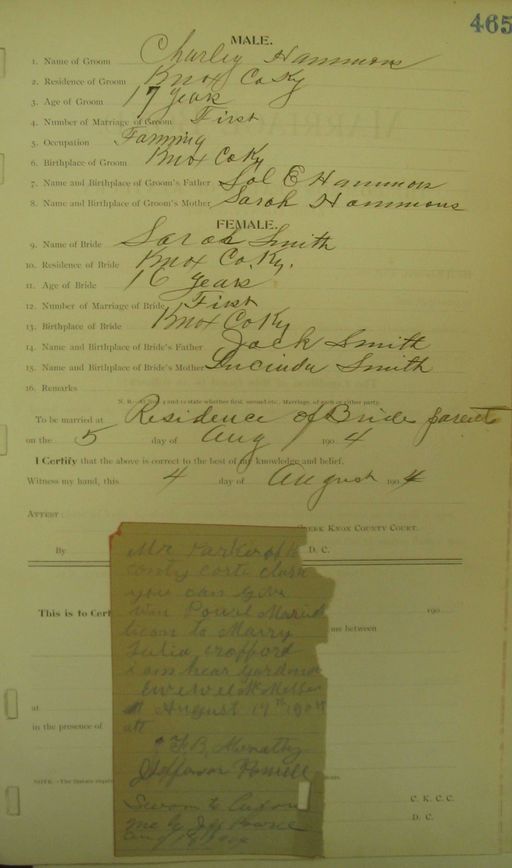 465
MALE.
1. Name of Groom Charley Hammons
2. Residence of Groom Knox Co Ky
3. Age of Groom 17 years
4. Number of Marriage of Groom First
5. Occupation Farming
6. Birthplace of Groom Knox Co Ky
7. Name and Birthplace of Groom's Father Sol E Hammons
8. Name and Birthplace of Groom's Mother Sarah Hammons
FEMALE.
9. Name of Bride Sarah Smith
10. Residence of Bride Knox Co. Ky.
11. Age of Bride 16 years
12. Number of Marriage of Bride First
13. Birthplace of Bride Knox Co Ky
14. Name and Birthplace of Bride's Father Jack Smith
15. Name and Birthplace of Bride's Mother Lucinda Smith
16. Remarks
N. B.—At Nos. 4 and 12 state whether first, second etc., Marriage, of each or either party.
To be married at Residence of Bride parents
on the 5 day of Aug 190 4
I Certify that the above is correct to the best of my knowledge and belief.
Witness my hand, this 4 day of August 190 4
ATTEST:
CLERK KNOX COUNTY COURT.
By D. C.
Mr
county cort clark
you can give
Wm Powel
to Marry
Julia crofford
i am hear
August 19th 190
att
F. B.
Jefferson Powell
Sworn to
me by Jeff
Aug
This is to Cert 190
ms between
at
in the presence of
NOTE.
C. K. C. C.
D. C.